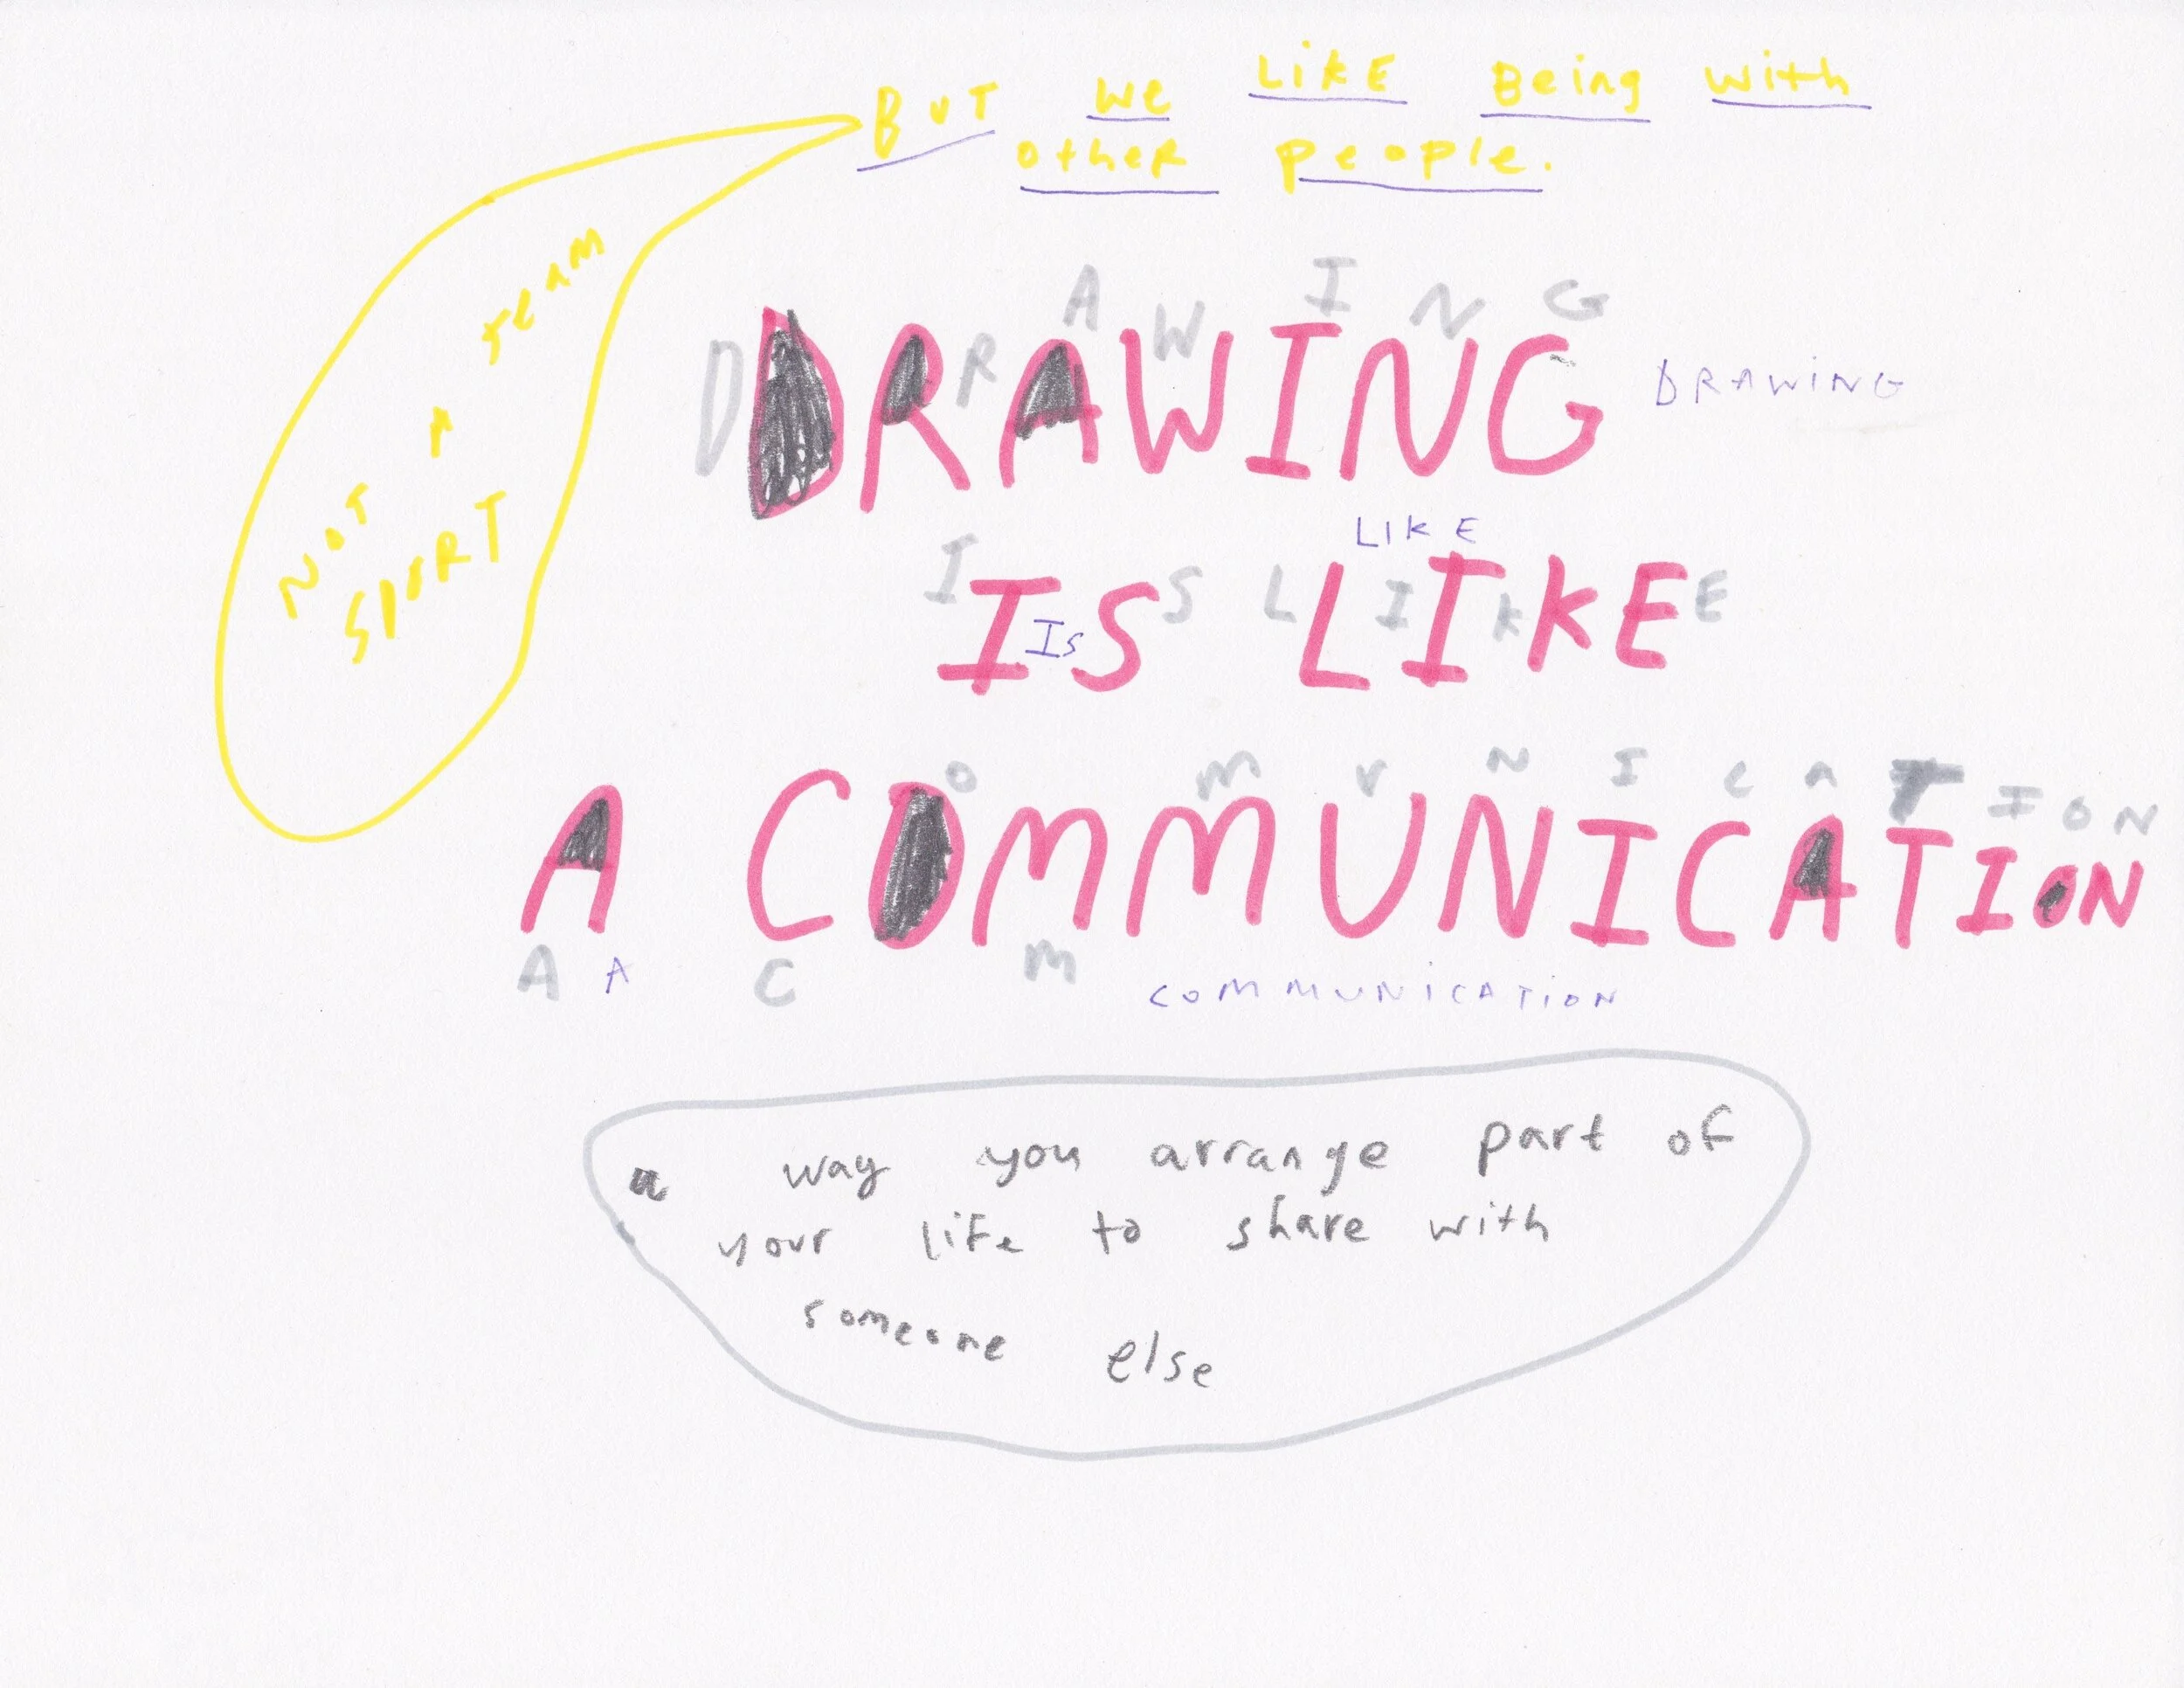 BUT we LIKE Being with
other people.
NOT A team
SPORT
D R A W I N G
DRAWING
DRAWING
LIKE
I S L I K E
IS LIKE
Is
O M U N I C A T I O N
A COMMUNICATION
A A C M
COMMUNICATION
a way you arrange part of
your life to share with
someone else